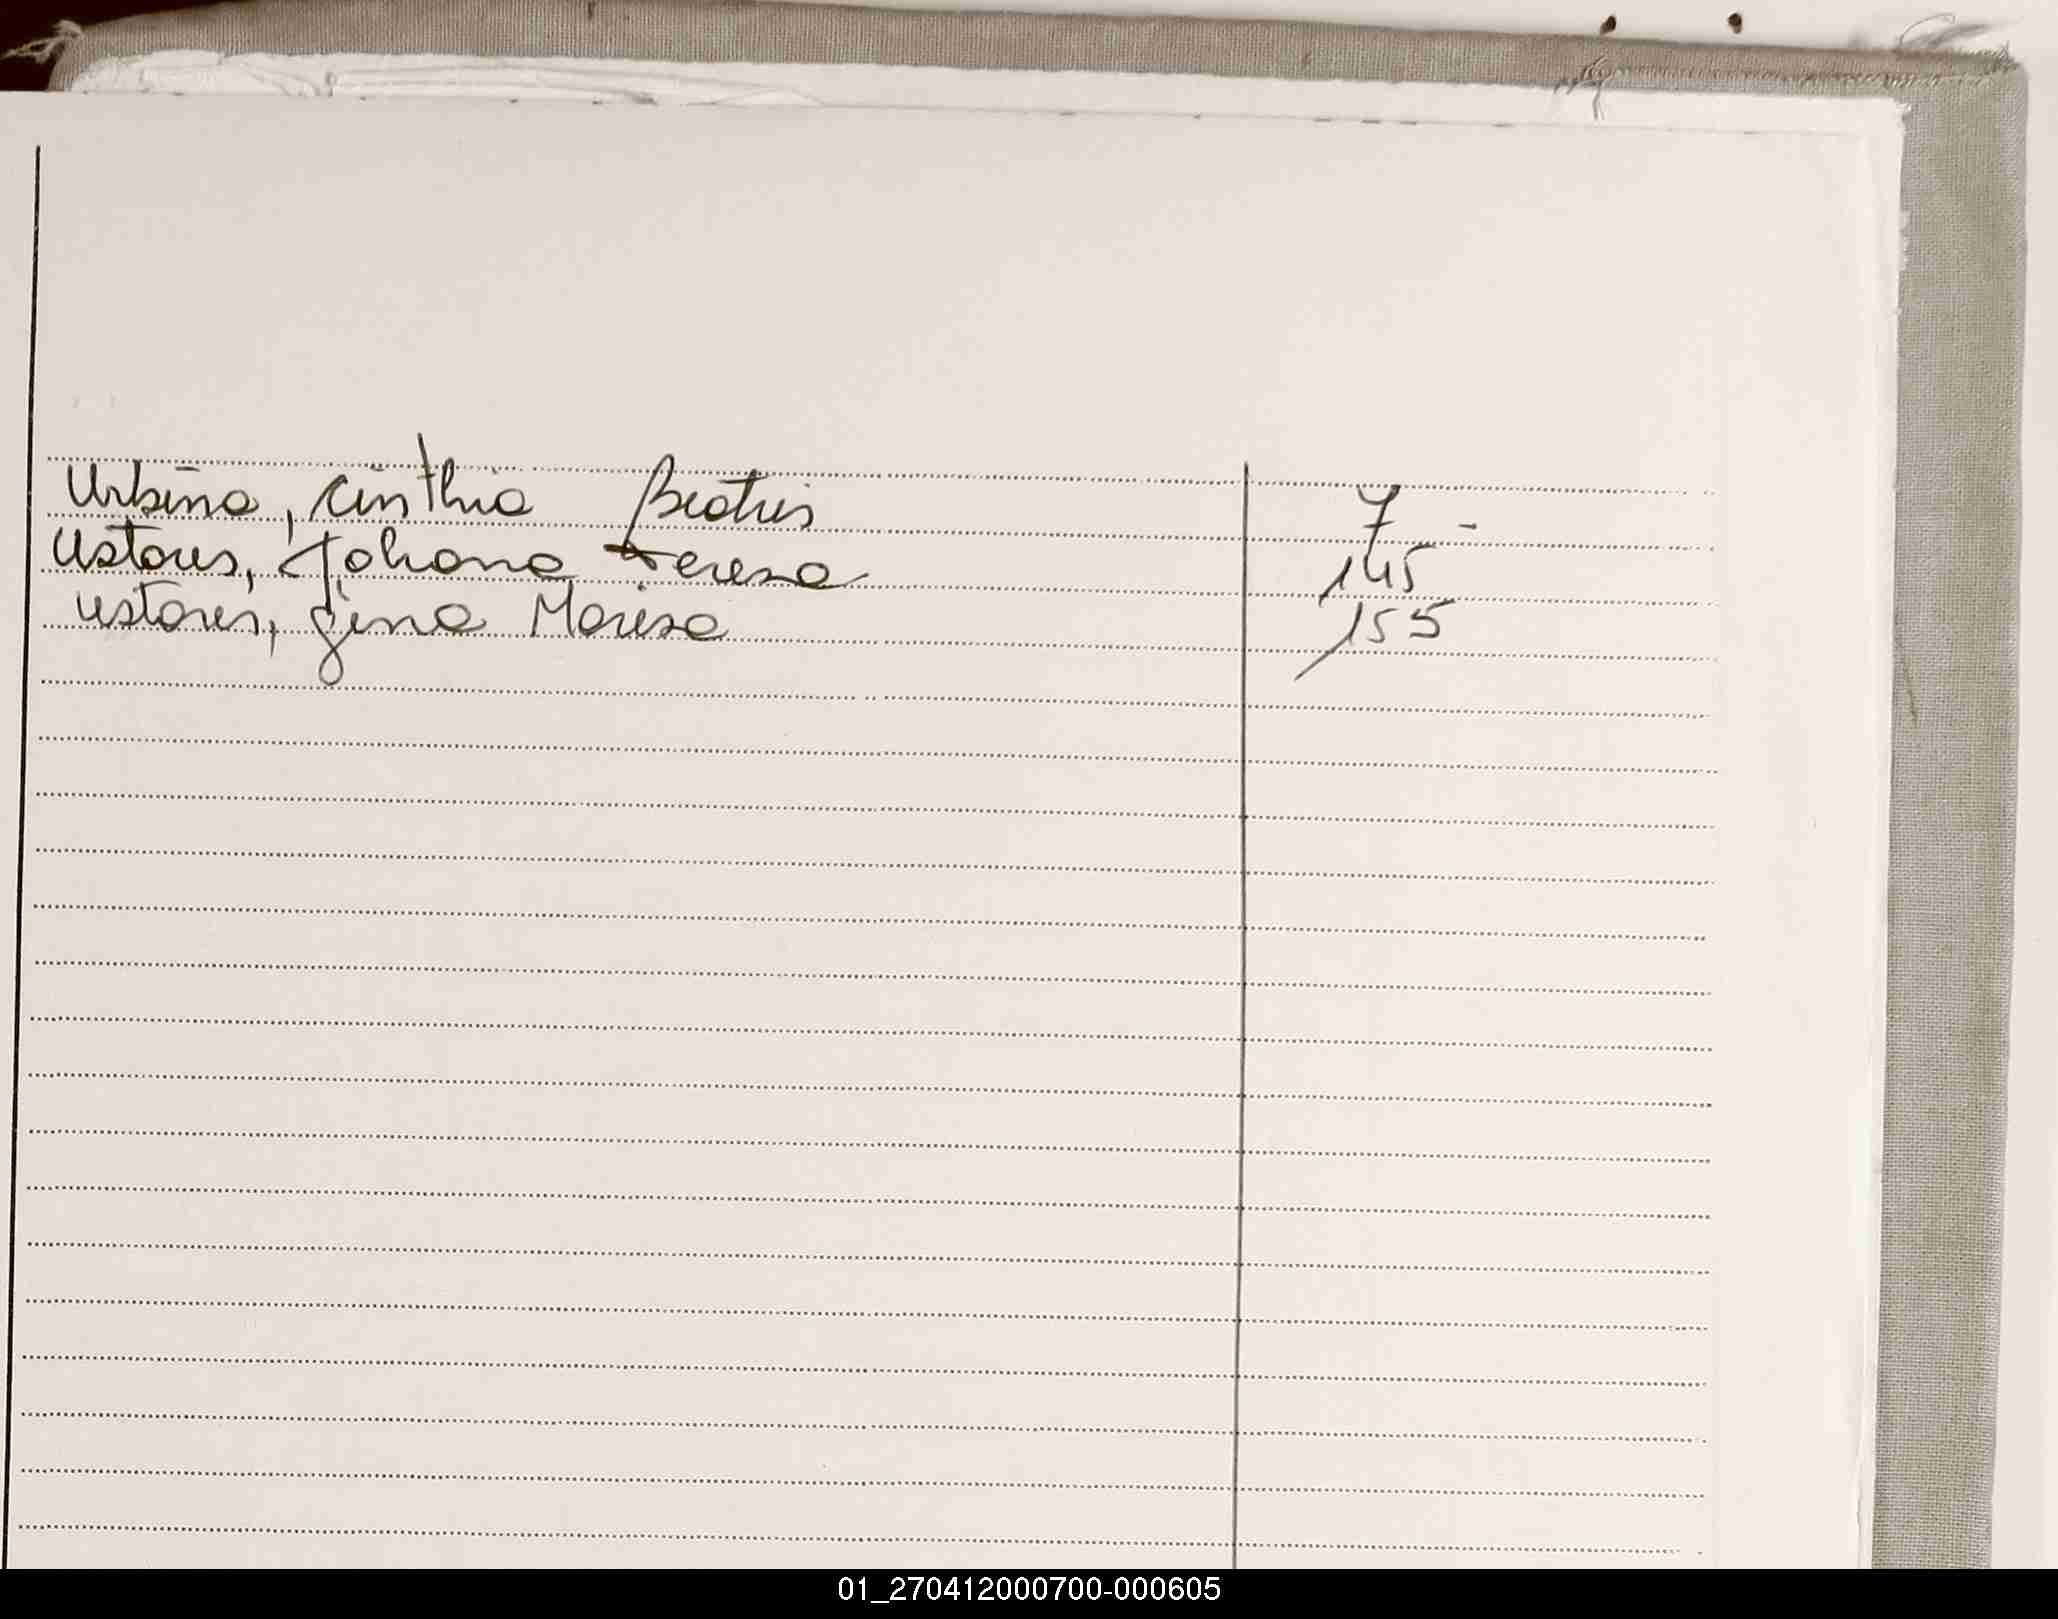 Urbina, Cinthia Beatris 7 -
Ustares, Johana Teresa 145
Ustares, Gina Marisa 155
01_270412000700-000605